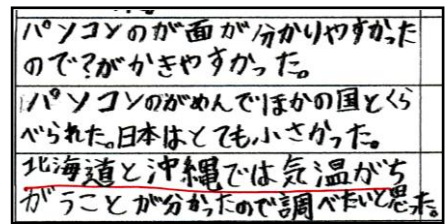 パソコンのが面が分かりやすかった
ので?がかきやすかった。
パソコンのがめんでほかの国とくら
べられた。日本はとても小さかった。
北海道と沖縄では気温がち
がうことが分かったので調べたいと思た